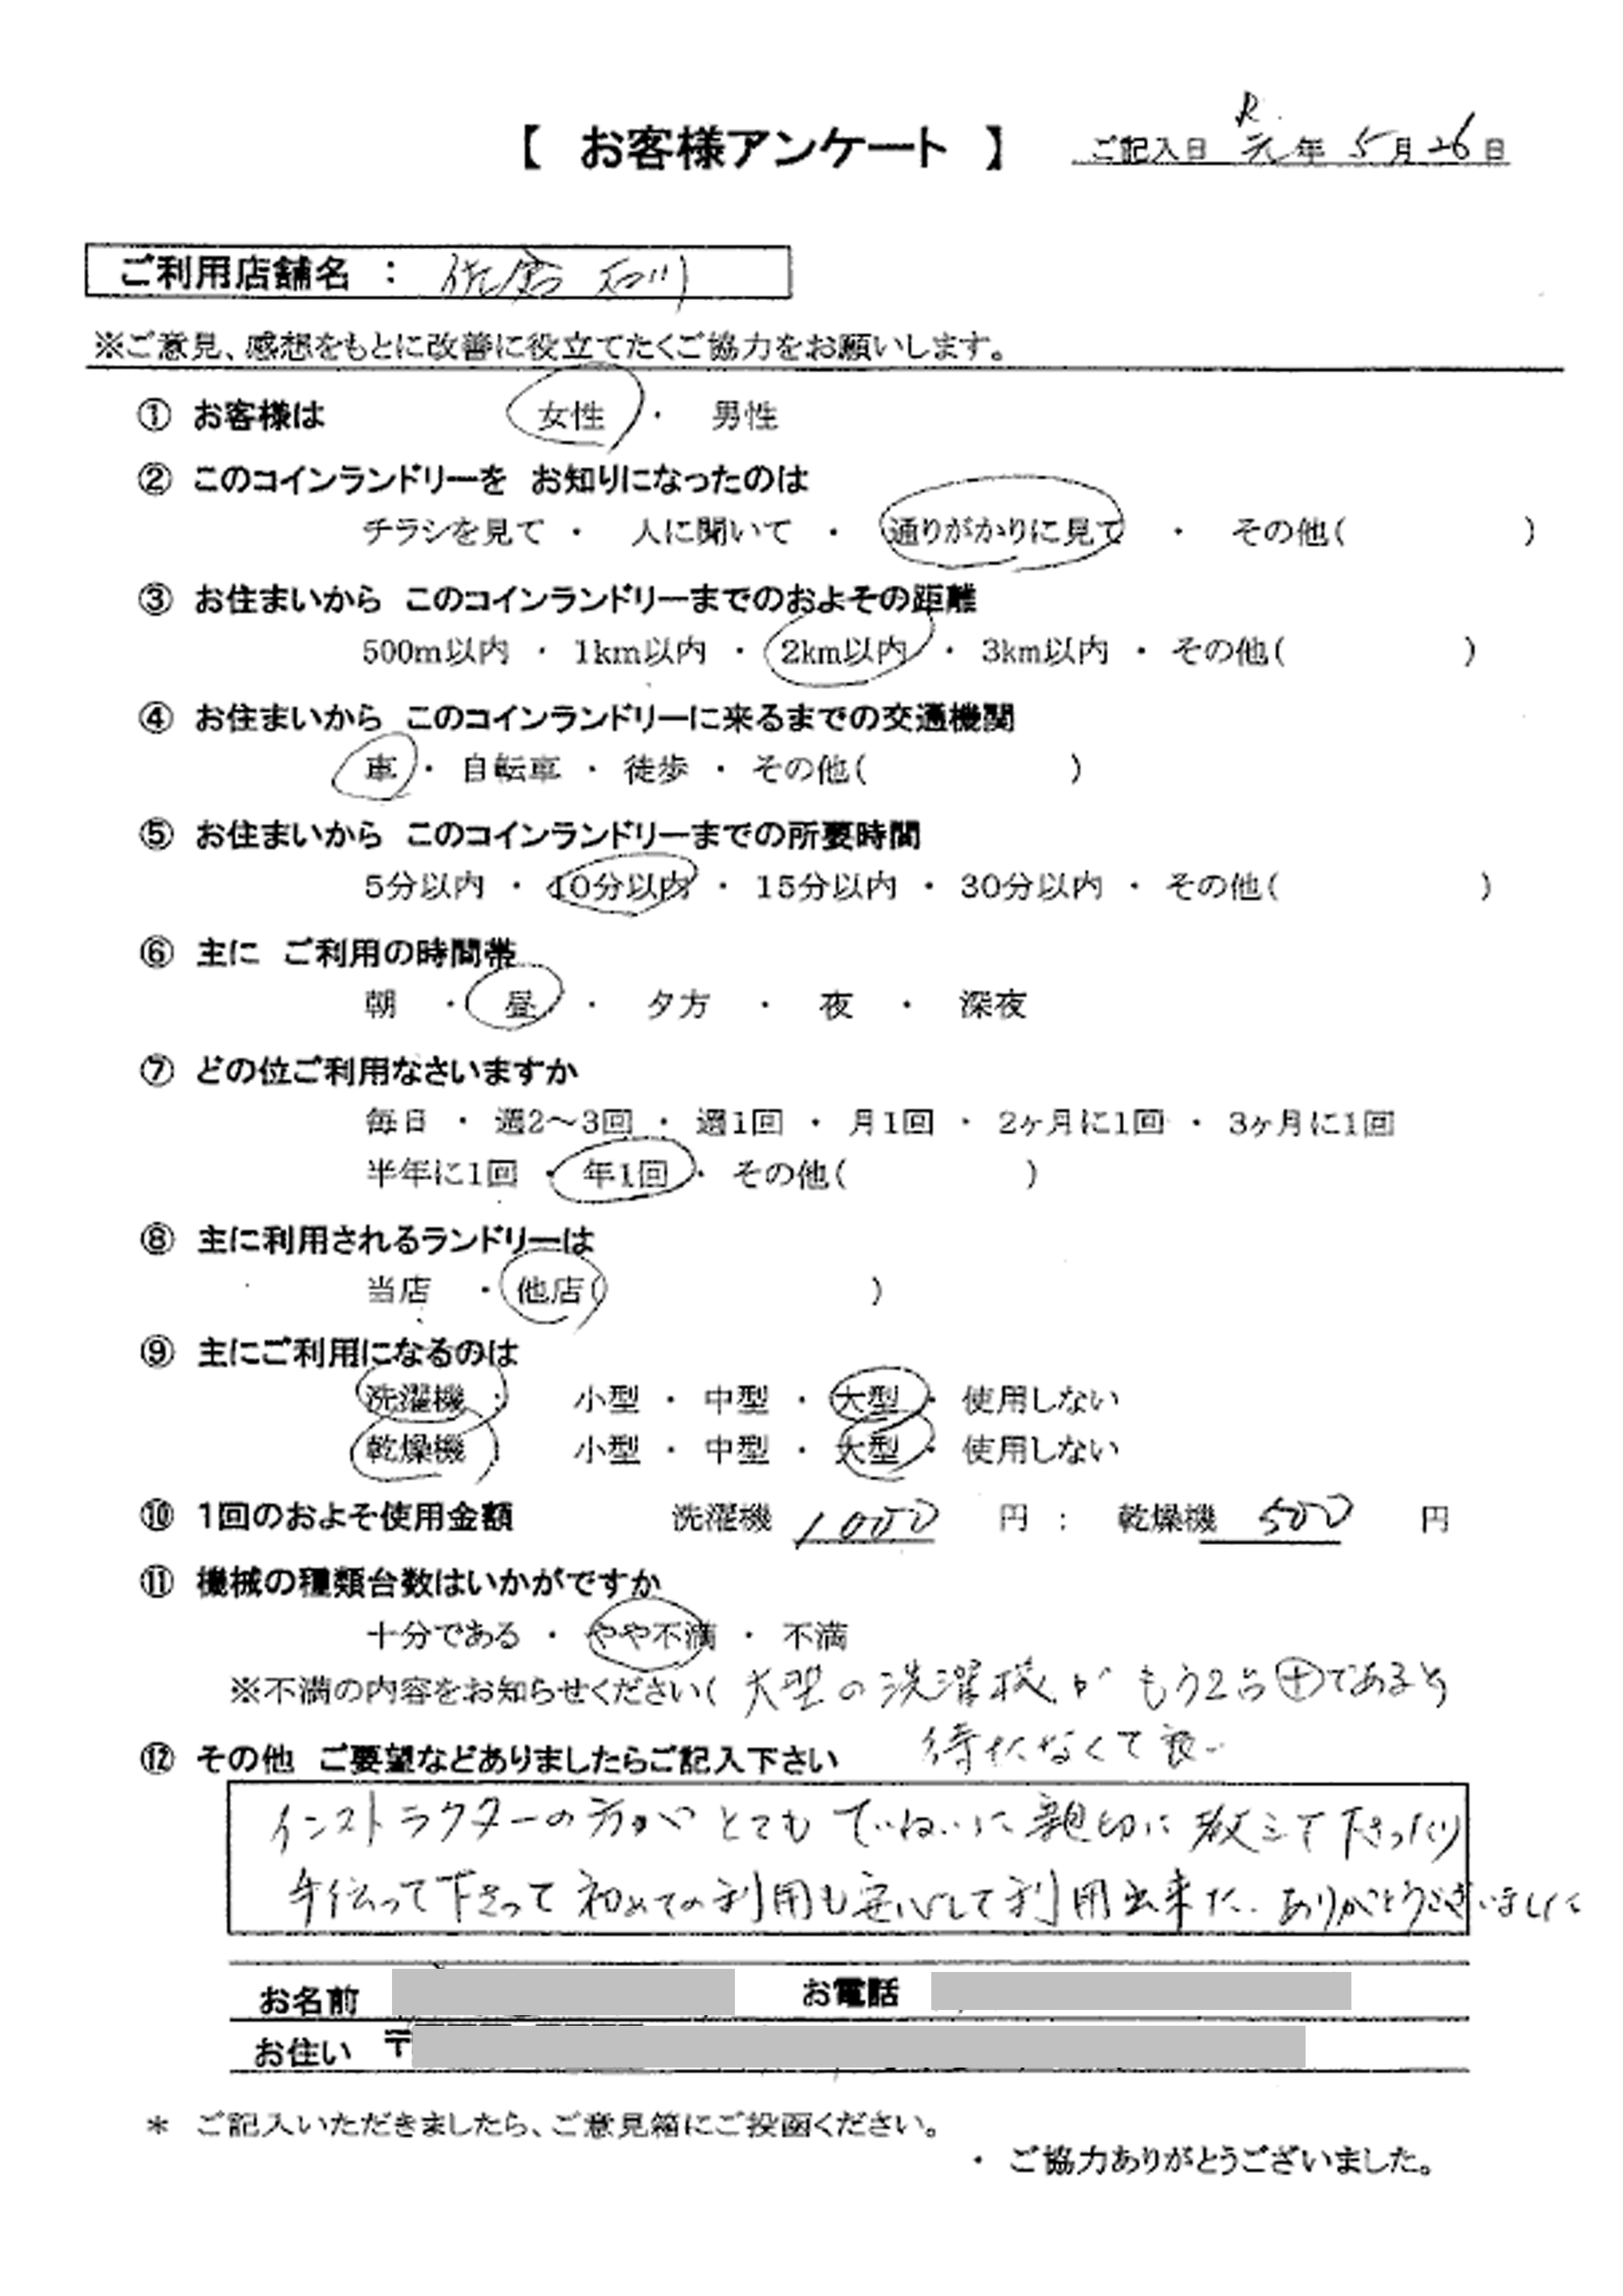 【 お客様アンケート 】 ご記入日 R元年 5月26日
ご利用店舗名 : 佐倉 石川
※ご意見、感想をもとに改善に役立てたくご協力をお願いします。
① お客様は 女性 ・ 男性
② このコインランドリーを お知りになったのは
チラシを見て ・ 人に聞いて ・ 通りがかりに見て ・ その他( )
③ お住まいから このコインランドリーまでのおよその距離
500m以内 ・ 1km以内 ・ 2km以内 ・ 3km以内 ・ その他( )
④ お住まいから このコインランドリーに来るまでの交通機関
車 ・ 自転車 ・ 徒歩 ・ その他( )
⑤ お住まいから このコインランドリーまでの所要時間
5分以内 ・ 10分以内 ・ 15分以内 ・ 30分以内 ・ その他( )
⑥ 主に ご利用の時間帯
朝 ・ 昼 ・ 夕方 ・ 夜 ・ 深夜
⑦ どの位ご利用なさいますか
毎日 ・ 週2～3回 ・ 週1回 ・ 月1回 ・ 2ヶ月に1回 ・ 3ヶ月に1回
半年に1回 ・ 年1回 ・ その他( )
⑧ 主に利用されるランドリーは
当店 ・ 他店( )
⑨ 主にご利用になるのは
洗濯機 : 小型 ・ 中型 ・ 大型 ・ 使用しない
乾燥機 : 小型 ・ 中型 ・ 大型 ・ 使用しない
⑩ 1回のおよそ使用金額 洗濯機 1000 円 : 乾燥機 500 円
⑪ 機械の種類台数はいかがですか
十分である ・ やや不満 ・ 不満
※不満の内容をお知らせください( 大型の洗濯機が もう2台⊕であると
待たなくて良い
⑫ その他 ご要望などありましたらご記入下さい
インストラクターの方が とても ていねいに親切に教えて下さったり
手伝って下さって初めての利用も安心して利用出来た. ありがとうございました
お名前 お電話
お住い 〒
＊ ご記入いただきましたら、ご意見箱にご投函ください。
・ ご協力ありがとうございました。